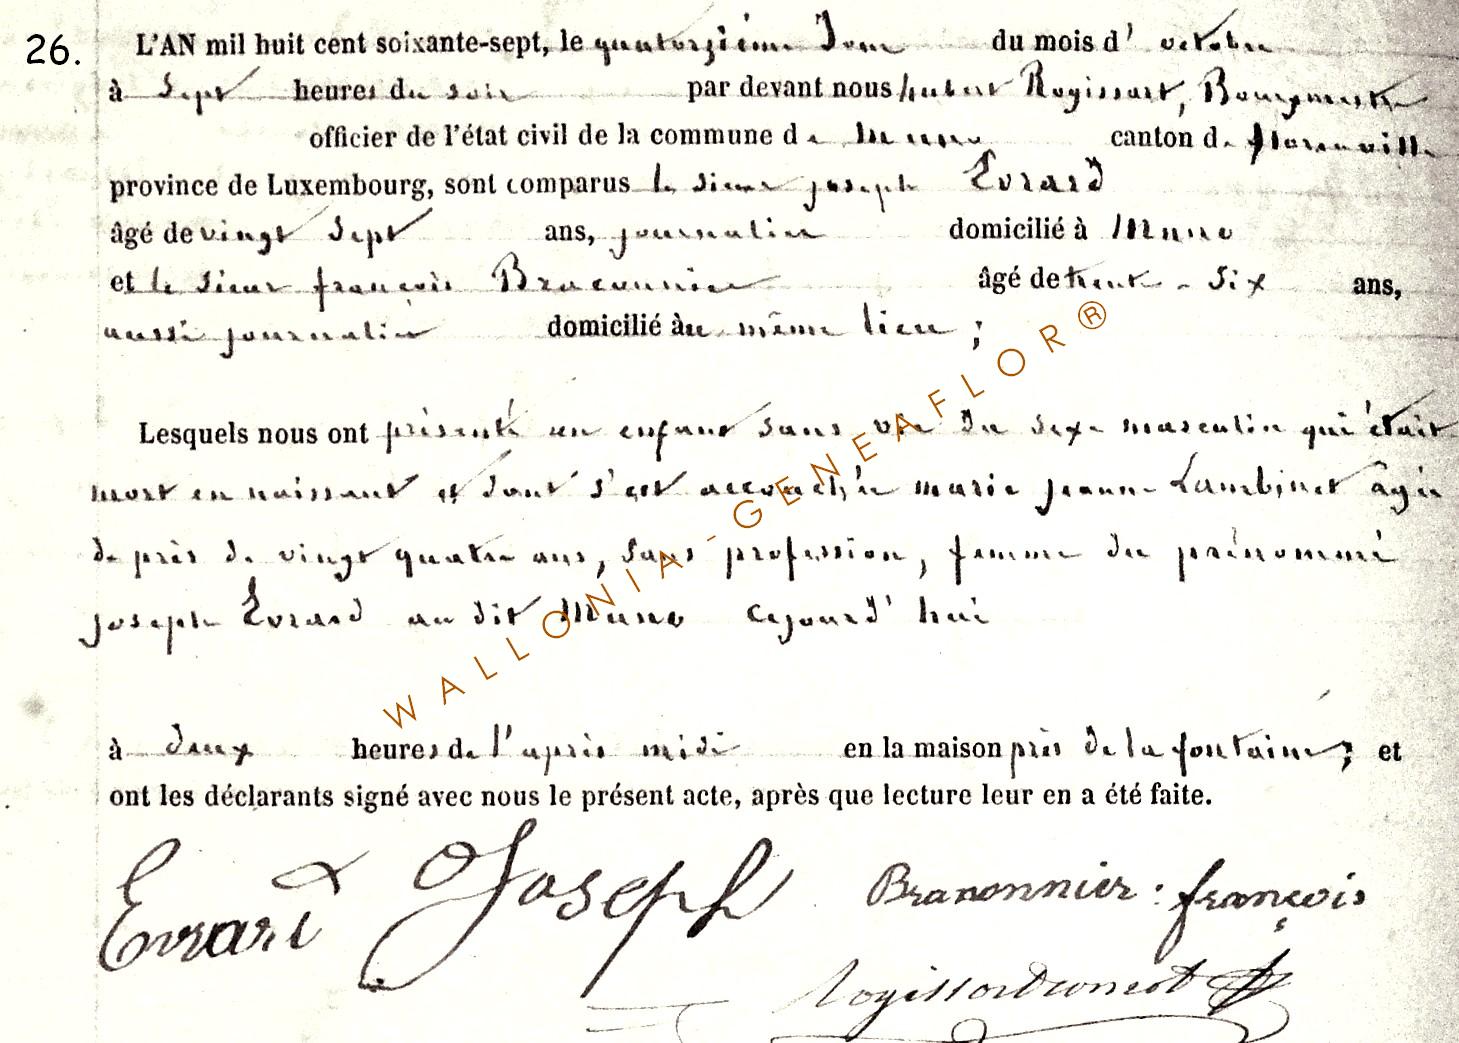 26.
L'AN mil huit cent soixante-sept, le quatorzième Jour du mois d' octobre
à Sept heures du soir par devant nous hubert Rogissart, Bourgmestre
officier de l'état civil de la commune de Muno canton de florenville
province de Luxembourg, sont comparus le sieur joseph Evrard
âgé de vingt Sept ans, journalier domicilié à Muno
et le sieur françois Braconnier âgé de trente-six ans,
aussi journalier domicilié àu même lieu ;
Lesquels nous ont présenté un enfant sans vie du sexe masculin qui était
mort en naissant et dont s'est accouchée marie jeanne Lambinet âgée
de près de vingt quatre ans, sans profession, femme du prénommé
joseph Evrard au dit Muno cejourd'hui
à deux heures de l'après midi en la maison près de la fontaine; et
ont les déclarants signé avec nous le présent acte, après que lecture leur en a été faite.
Evrard Joseph Braconnier : françois
WALLONIA - GENEAFLOR®